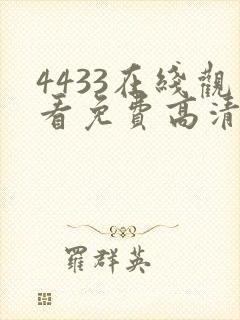 4433在綫觀
看免費高清
羅群英